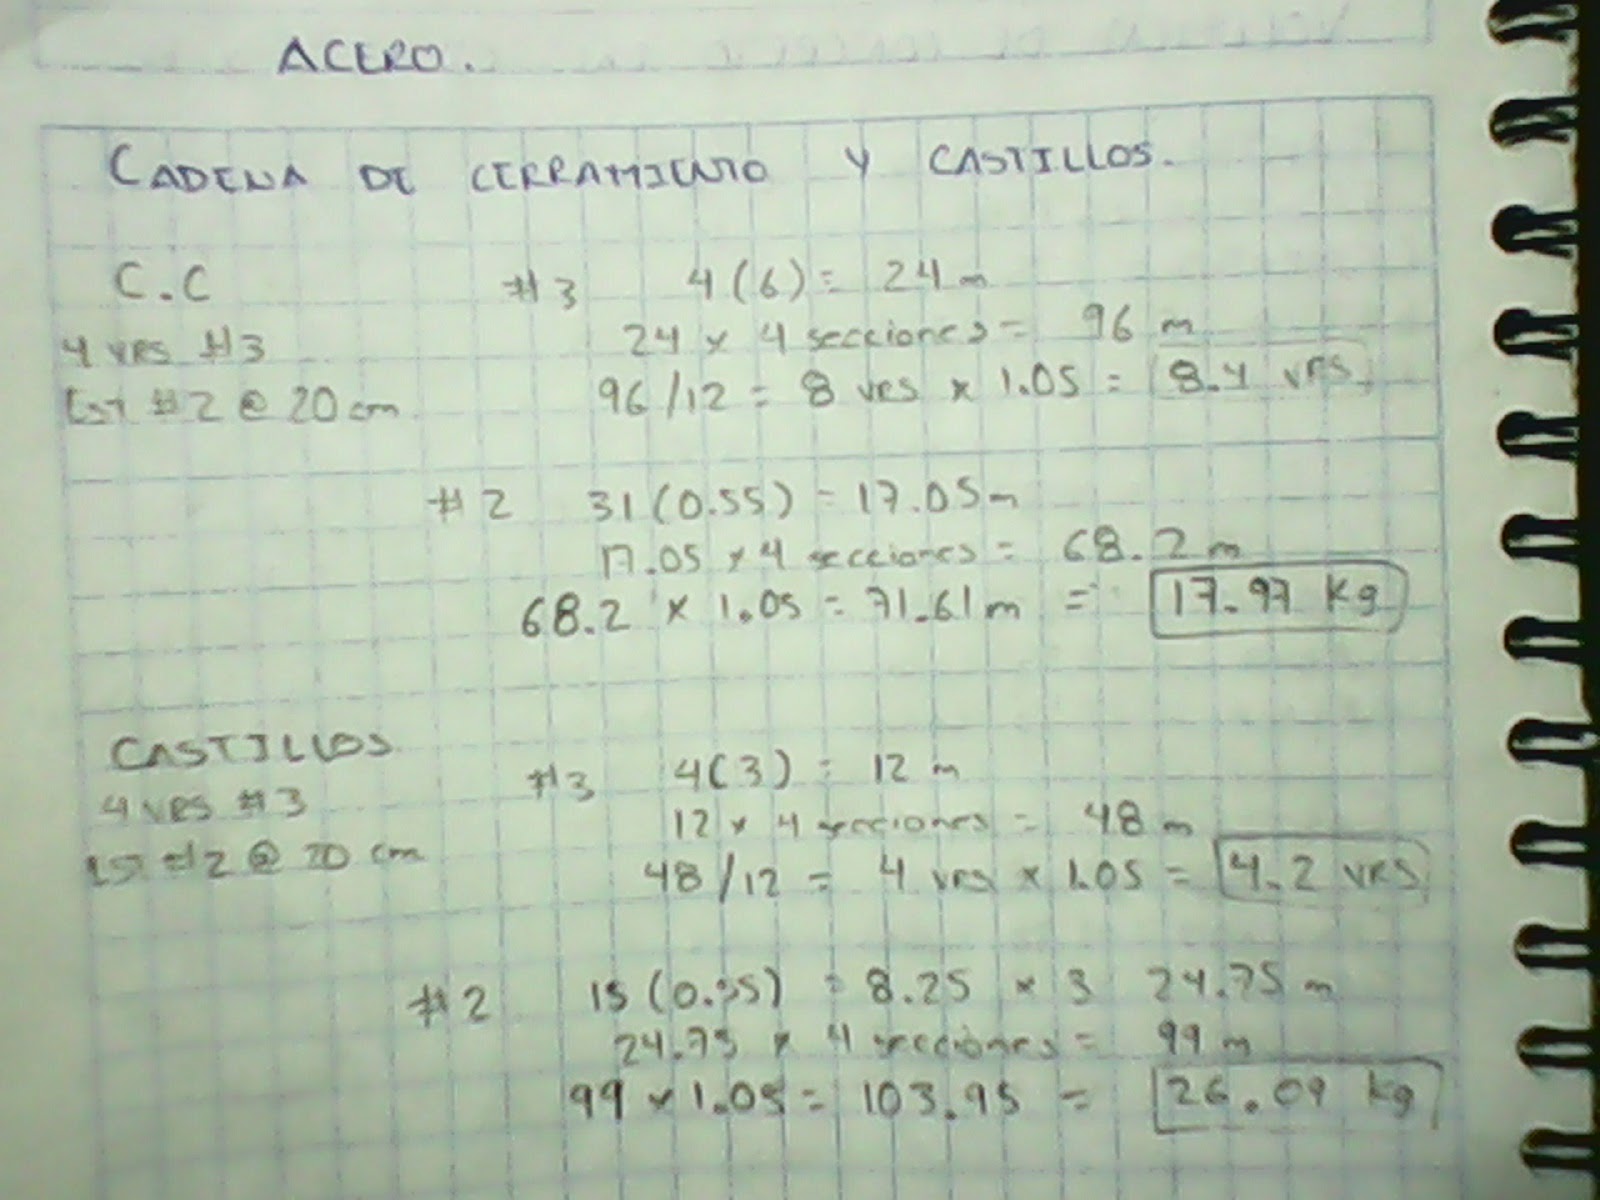 ACERO.
CADENA DE CERRAMIENTO Y CASTILLOS.
C.C #3 4(6) = 24 m
4 vrs #3 24 x 4 secciones = 96 m
Est #2 @ 20 cm 96/12 = 8 vrs x 1.05 = 8.4 vrs
#2 31(0.55) = 17.05 m
17.05 x 4 secciones = 68.2 m
68.2 x 1.05 = 71.61 m = 17.97 kg
CASTILLOS #3 4(3) = 12 m
4 vrs #3 12 x 4 secciones = 48 m
Est #2 @ 20 cm 48/12 = 4 vrs x 1.05 = 4.2 vrs
#2 15(0.55) = 8.25 x 3 24.75 m
24.75 x 4 secciones = 99 m
99 x 1.05 = 103.95 = 26.09 kg